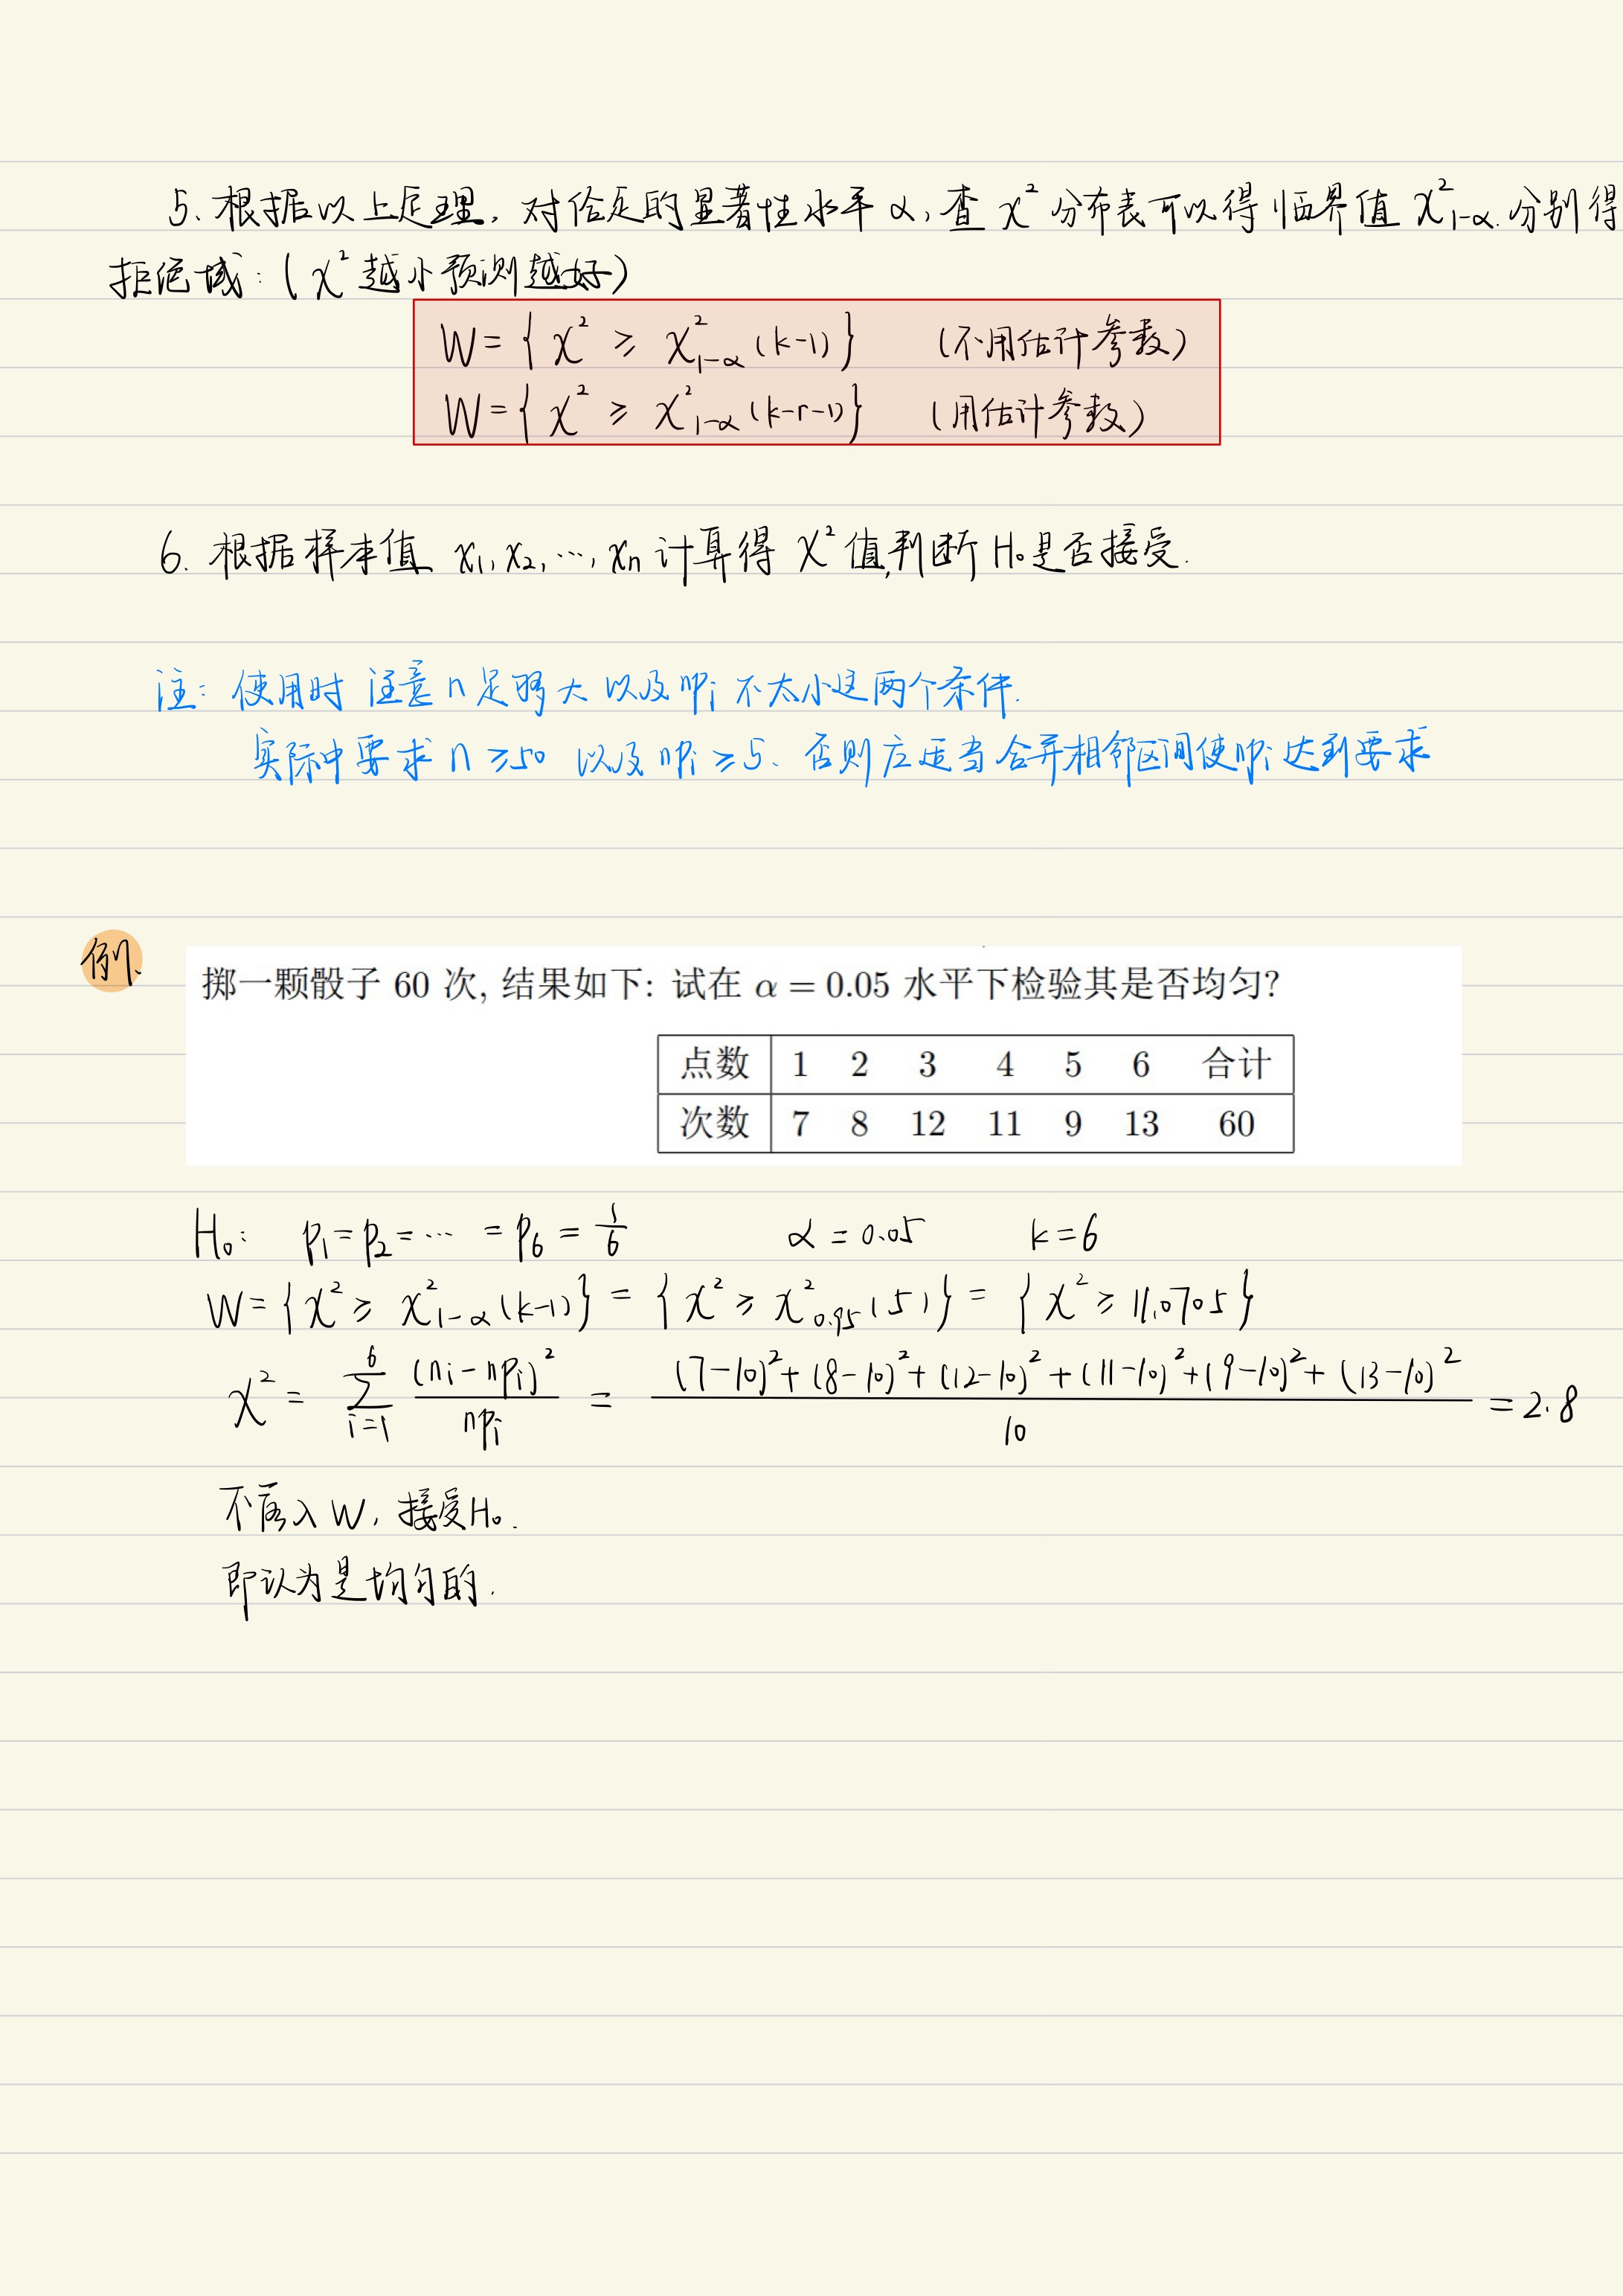 5. 根据以上定理, 对给定的显著性水平 α, 查 χ² 分布表可以得临界值 χ²₁₋α. 分别得
拒绝域: (χ² 越小预测越好)
W = { χ² ≥ χ²₁₋α (k-1) } (不用估计参数)
W = { χ² ≥ χ²₁₋α (k-r-1) } (用估计参数)
6. 根据样本值 x₁, x₂, ⋯, xₙ 计算得 χ² 值, 判断 H₀ 是否接受.
注: 使用时 注意 n 足够大 以及 npᵢ 不太小这两个条件.
实际中要求 n ≥ 50 以及 npᵢ ≥ 5、否则应适当合并相邻区间使 npᵢ 达到要求
例.
掷一颗骰子 60 次, 结果如下: 试在 α = 0.05 水平下检验其是否均匀?
点数 1 2 3 4 5 6 合计
次数 7 8 12 11 9 13 60
H₀: p₁ = p₂ = ⋯ = p₆ = 1/6 α = 0.05 k = 6
W = { χ² ≥ χ²₁₋α (k-1) } = { χ² ≥ χ²₀.₉₅ (5) } = { χ² ≥ 11.0705 }
χ² = ∑ᵢ₌₁⁶ (nᵢ - npᵢ)² / npᵢ = ((7-10)² + (8-10)² + (12-10)² + (11-10)² + (9-10)² + (13-10)²) / 10 = 2.8
不落入 W, 接受 H₀.
即认为是均匀的.